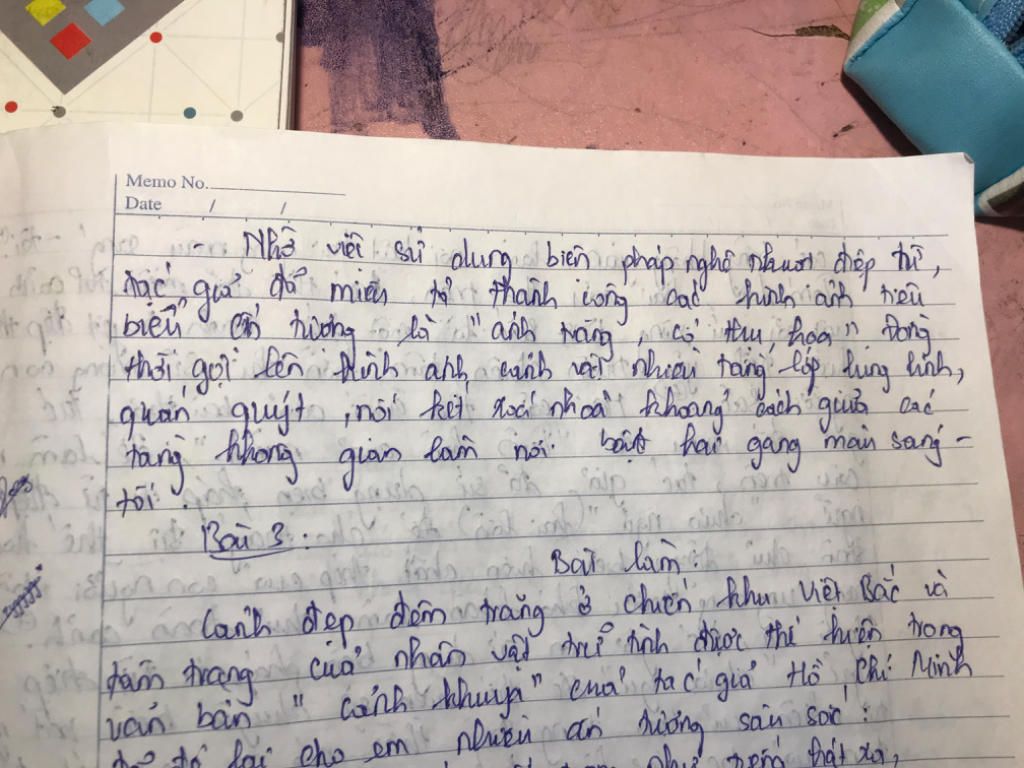 Memo No.
Date / /
- Nhờ việc sử dụng biện pháp nghệ thuật điệp từ,
tác giả đã miêu tả thành công các hình ảnh tiêu
biểu ấn tượng là "ánh trăng, cổ thụ, hoa". Đồng
thời gợi lên hình ảnh cảnh vật nhiều tầng lớp lung linh,
quấn quýt, nối kết xoá nhoà khoảng cách giữa các
tầng không gian làm nổi bật hai gang màu sáng -
tối.
Bài 3:
Bài làm:
Cảnh đẹp đêm trăng ở chiến khu Việt Bắc và
tâm trạng của nhân vật trữ tình được thể hiện trong
văn bản "Cảnh khuya" của tác giả Hồ Chí Minh
đã để lại cho em nhiều ấn tượng sâu sắc:
như tiếng hát xa,